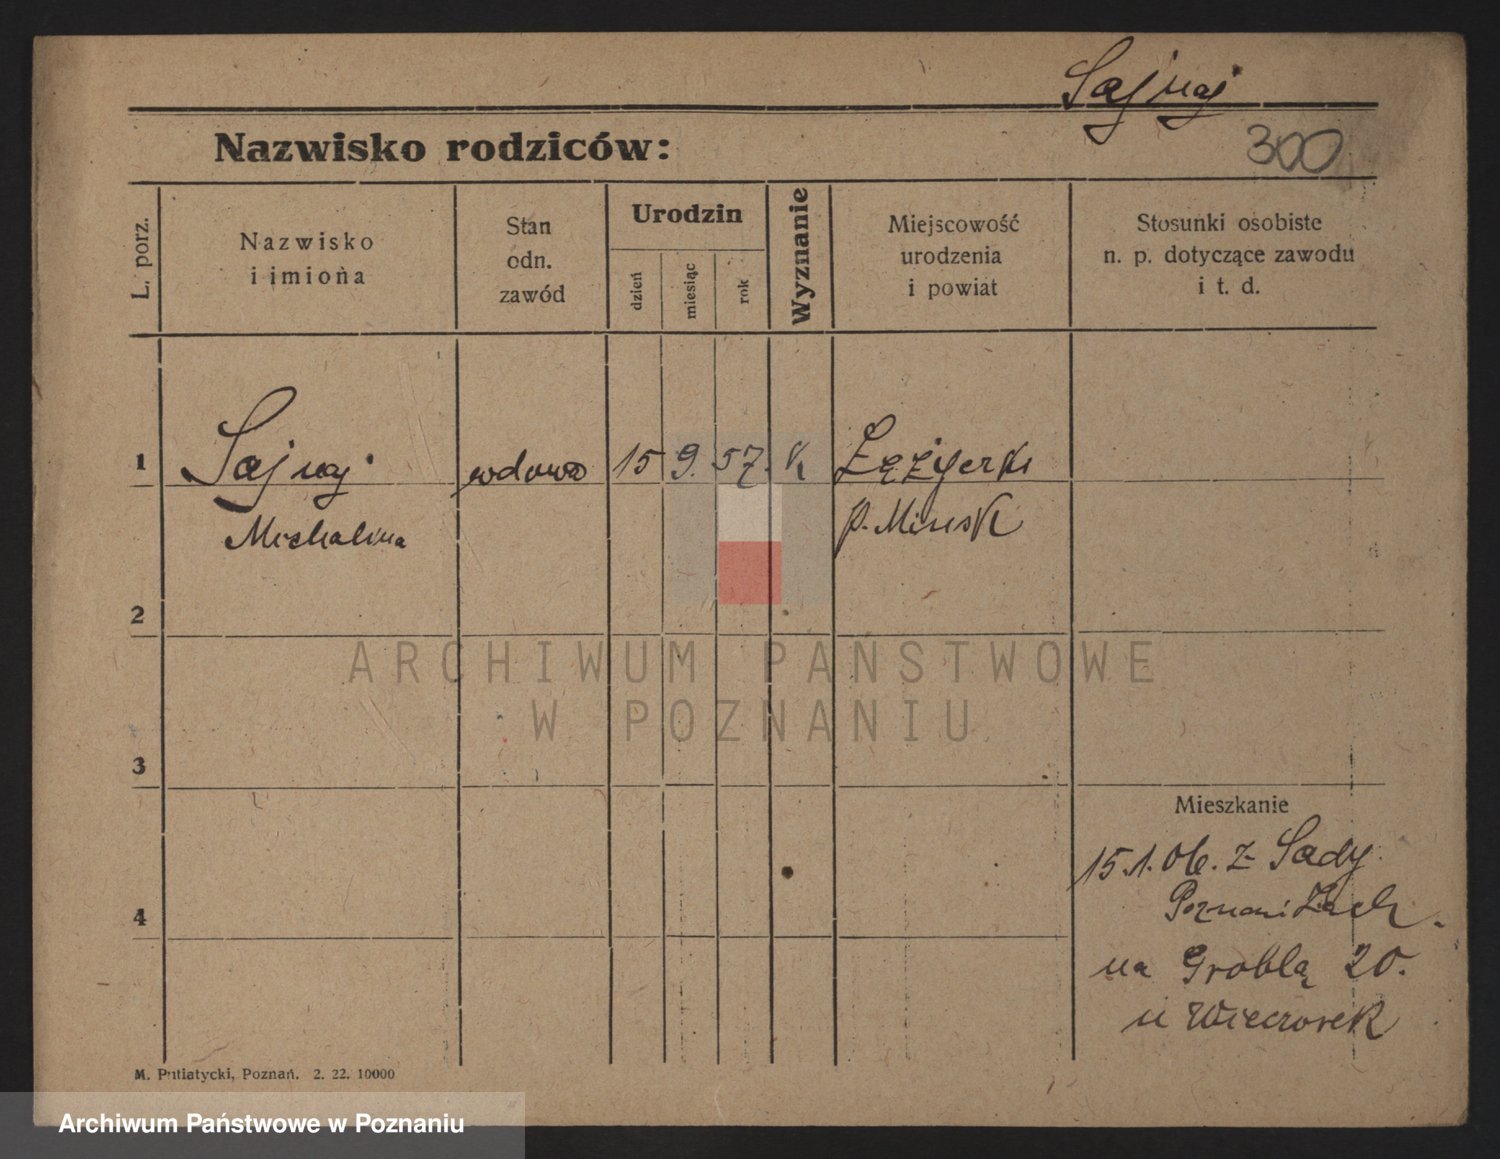 Sajnaj
Nazwisko rodziców:
300
L. porz.
Nazwisko
i imiona
Stan
odn.
zawód
Urodzin
dzień
miesiąc
rok
Wyznanie
Miejscowość
urodzenia
i powiat
Stosunki osobiste
n. p. dotyczące zawodu
i t. d.
1
Sajnaj
Michalina
wdowa
15
9.
57.
K
p. Minsk
2
3
4
ARCHIWUM PAŃSTWOWE
W POZNANIU
Mieszkanie
15.1.06. z Sady
Poznań Zach.
na Groblą 20.
u Wieczorek
M. Putiatycki, Poznań. 2. 22. 10000
Archiwum Państwowe w Poznaniu